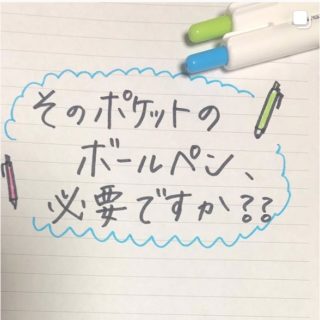 そのポケットの
ボールペン、
必要ですか??